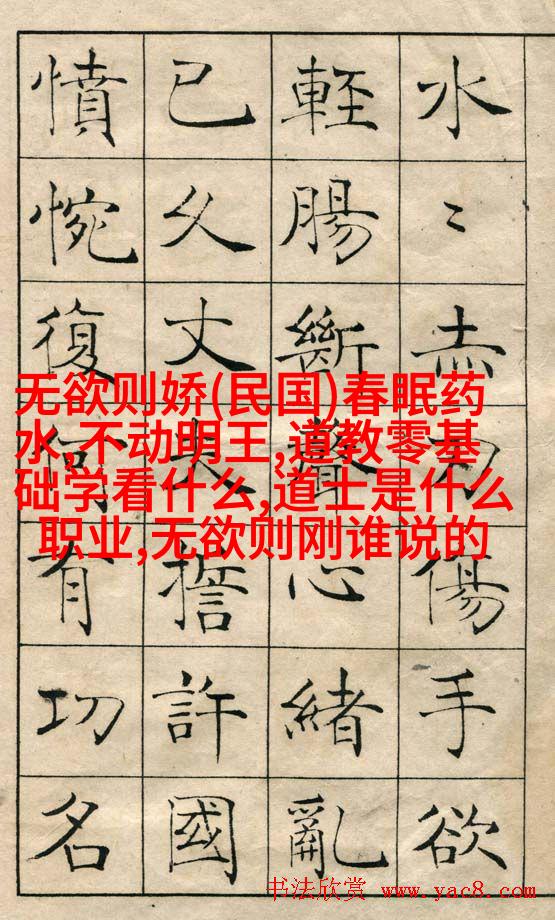 水〻赤刃傷手欲
輕腸斷聲心緒亂
已久丈夫誓許國
憤惋復何有功名
无欲则娇(民国)春眠药
水,不动明王,道教零基
础学看什么,道士是什么
职业,无欲则刚谁说的
书法欣赏 www.yac8.com